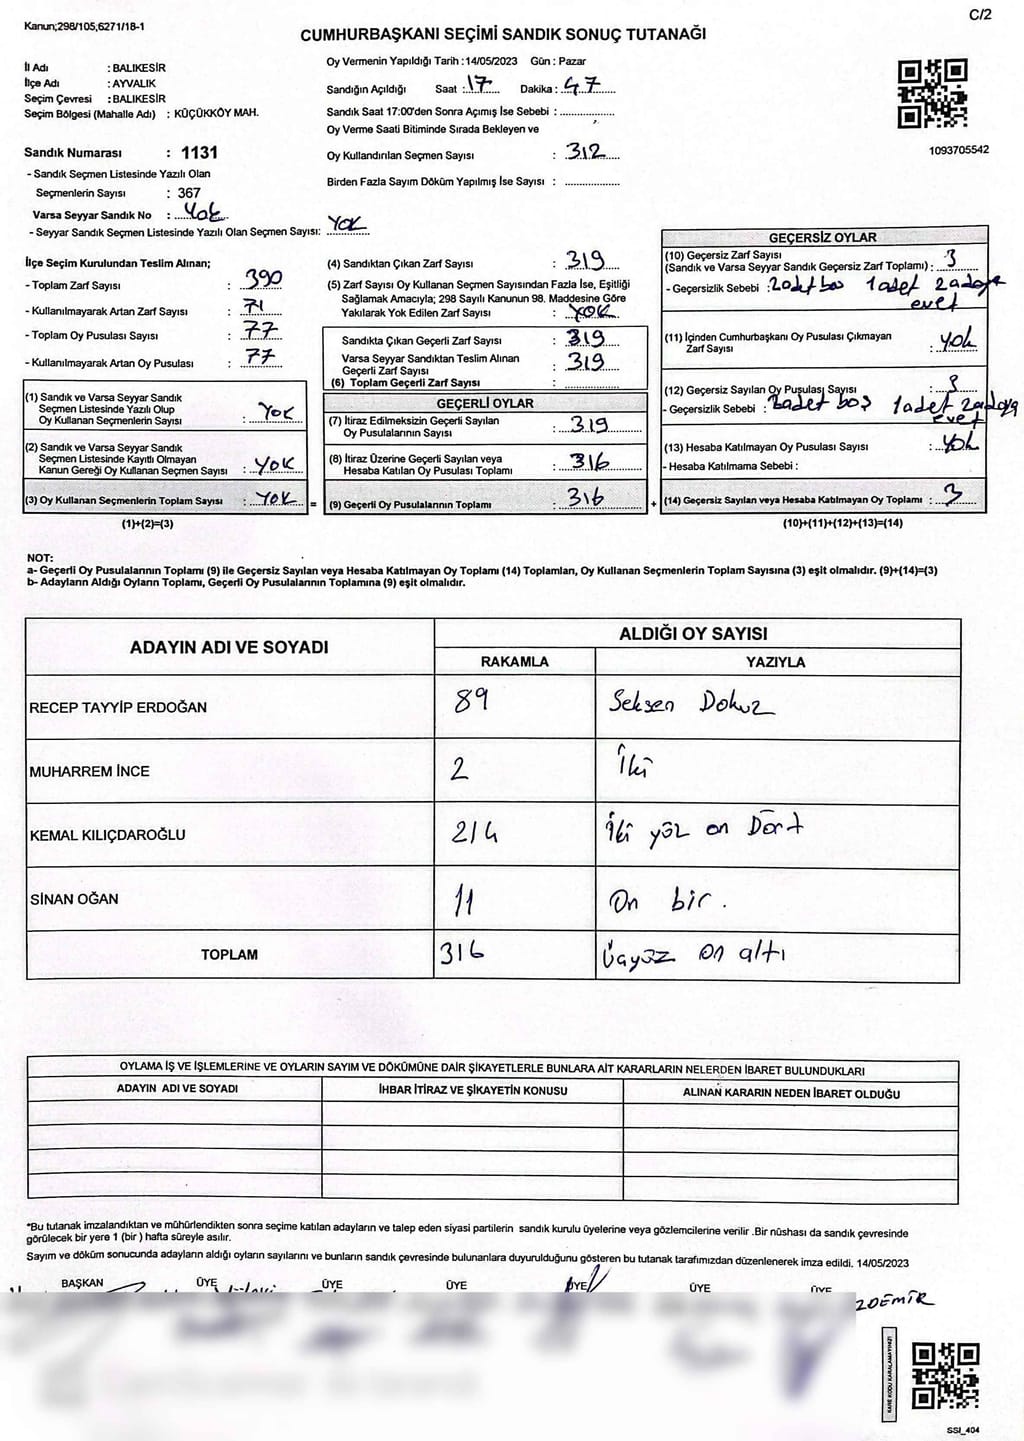 Kanun;298/105,6271/18-1
C/2
CUMHURBAŞKANI SEÇİMİ SANDIK SONUÇ TUTANAĞI
İl Adı : BALIKESİR
İlçe Adı : AYVALIK
Seçim Çevresi : BALIKESİR
Seçim Bölgesi (Mahalle Adı) : KÜÇÜKKÖY MAH.
Sandık Numarası : 1131
- Sandık Seçmen Listesinde Yazılı Olan
Seçmenlerin Sayısı : 367
Varsa Seyyar Sandık No : Yok
- Seyyar Sandık Seçmen Listesinde Yazılı Olan Seçmen Sayısı: YOK
Oy Vermenin Yapıldığı Tarih :14/05/2023 Gün : Pazar
Sandığın Açıldığı Saat : 17 Dakika : 47
Sandık Saat 17:00'den Sonra Açımış İse Sebebi :
Oy Verme Saati Bitiminde Sırada Bekleyen ve
Oy Kullandırılan Seçmen Sayısı : 312
Birden Fazla Sayım Döküm Yapılmış İse Sayısı :
1093705542
İlçe Seçim Kurulundan Teslim Alınan;
- Toplam Zarf Sayısı : 390
- Kullanılmayarak Artan Zarf Sayısı : 71
- Toplam Oy Pusulası Sayısı : 77
- Kullanılmayarak Artan Oy Pusulası : 77
(1) Sandık ve Varsa Seyyar Sandık
Seçmen Listesinde Yazılı Olup
Oy Kullanan Seçmenlerin Sayısı : YOK
(2) Sandık ve Varsa Seyyar Sandık
Seçmen Listesinde Kayıtlı Olmayan
Kanun Gereği Oy Kullanan Seçmen Sayısı : YOK
(3) Oy Kullanan Seçmenlerin Toplam Sayısı : YOK =
(1)+(2)=(3)
(4) Sandıktan Çıkan Zarf Sayısı : 319
(5) Zarf Sayısı Oy Kullanan Seçmen Sayısından Fazla İse, Eşitliği
Sağlamak Amacıyla; 298 Sayılı Kanunun 98. Maddesine Göre
Yakılarak Yok Edilen Zarf Sayısı : YOK
Sandıkta Çıkan Geçerli Zarf Sayısı : 319
Varsa Seyyar Sandıktan Teslim Alınan
Geçerli Zarf Sayısı : 319
(6) Toplam Geçerli Zarf Sayısı :
GEÇERLİ OYLAR
(7) İtiraz Edilmeksizin Geçerli Sayılan
Oy Pusulalarının Sayısı : 319
(8) İtiraz Üzerine Geçerli Sayılan veya
Hesaba Katılan Oy Pusulası Toplamı : 316
(9) Geçerli Oy Pusulalarının Toplamı : 316 +
GEÇERSİZ OYLAR
(10) Geçersiz Zarf Sayısı
(Sandık ve Varsa Seyyar Sandık Geçersiz Zarf Toplamı) : 3
- Geçersizlik Sebebi : 2adet boş 1adet 2adaya
evet
(11) İçinden Cumhurbaşkanı Oy Pusulası Çıkmayan
Zarf Sayısı : Yok
(12) Geçersiz Sayılan Oy Pusulası Sayısı : 3
- Geçersizlik Sebebi : 2adet boş 1adet 2adaya
evet
(13) Hesaba Katılmayan Oy Pusulası Sayısı : Yok
- Hesaba Katılmama Sebebi :
(14) Geçersiz Sayılan veya Hesaba Katılmayan Oy Toplamı : 3
(10)+(11)+(12)+(13)=(14)
NOT:
a- Geçerli Oy Pusulalarının Toplamı (9) ile Geçersiz Sayılan veya Hesaba Katılmayan Oy Toplamı (14) Toplamları, Oy Kullanan Seçmenlerin Toplam Sayısına (3) eşit olmalıdır. (9)+(14)=(3)
b- Adayların Aldığı Oyların Toplamı, Geçerli Oy Pusulalarının Toplamına (9) eşit olmalıdır.
ADAYIN ADI VE SOYADI ALDIĞI OY SAYISI
RAKAMLA YAZIYLA
RECEP TAYYİP ERDOĞAN 89 Seksen Dokuz
MUHARREM İNCE 2 İki
KEMAL KILIÇDAROĞLU 214 İki yüz on Dört
SİNAN OĞAN 11 On bir.
TOPLAM 316 Üçyüz on altı
OYLAMA İŞ VE İŞLEMLERİNE VE OYLARIN SAYIM VE DÖKÜMÜNE DAİR ŞİKAYETLERLE BUNLARA AİT KARARLARIN NELERDEN İBARET BULUNDUKLARI
ADAYIN ADI VE SOYADI İHBAR İTİRAZ VE ŞİKAYETİN KONUSU ALINAN KARARIN NEDEN İBARET OLDUĞU
*Bu tutanak imzalandıktan ve mühürlendikten sonra seçime katılan adayların ve talep eden siyasi partilerin sandık kurulu üyelerine veya gözlemcilerine verilir .Bir nüshası da sandık çevresinde
görülecek bir yere 1 (bir ) hafta süreyle asılır.
Sayım ve döküm sonucunda adayların aldığı oyların sayılarını ve bunların sandık çevresinde bulunanlara duyurulduğunu gösteren bu tutanak tarafımızdan düzenlenerek imza edildi. 14/05/2023
BAŞKAN ÜYE ÜYE ÜYE ÜYE ÜYE ÜYE
KARE KODU KARALAMAYINIZ!
SSI_404